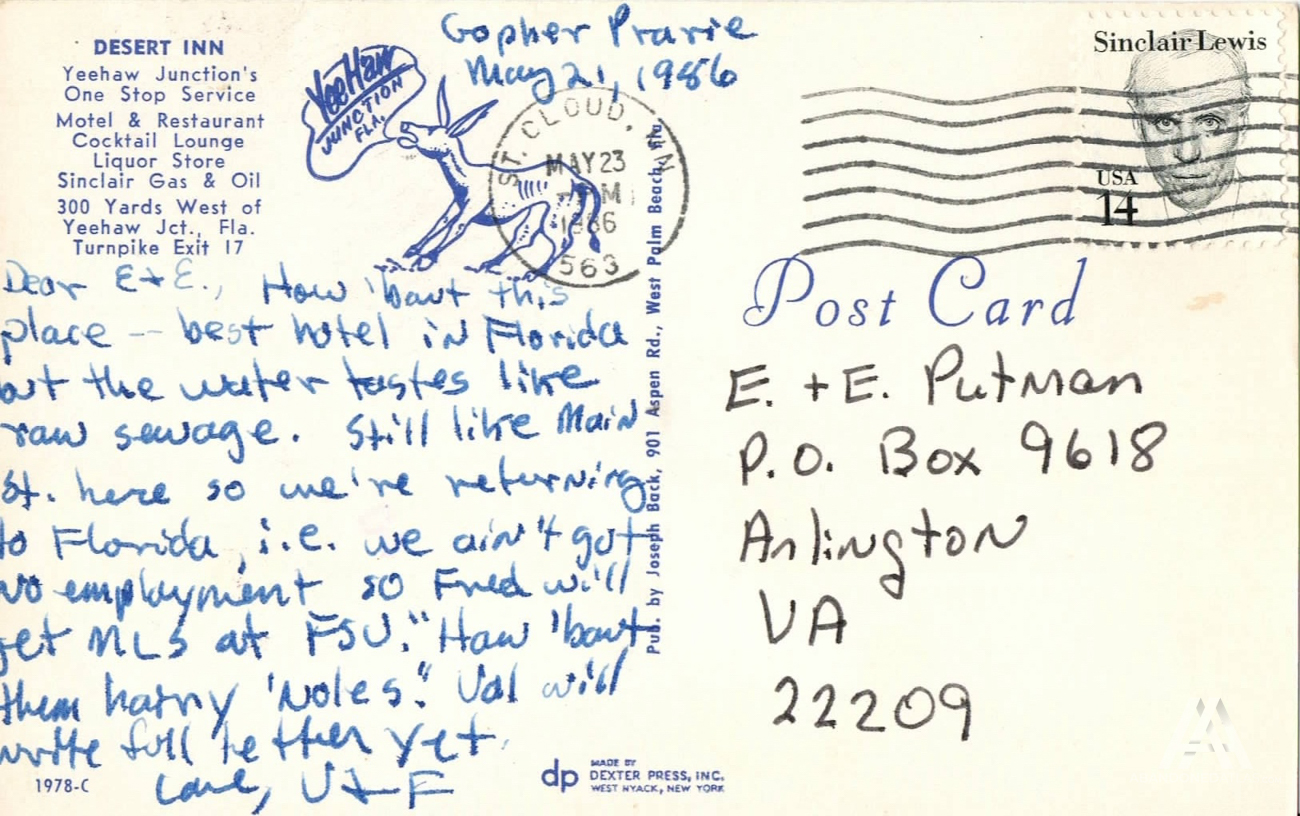 DESERT INN
Yeehaw Junction's
One Stop Service
Motel & Restaurant
Cocktail Lounge
Liquor Store
Sinclair Gas & Oil
300 Yards West of
Yeehaw Jct., Fla.
Turnpike Exit 17
YeeHaw
JUNCTION
FLA.
Gopher Prarie
May 21, 1986
ST. CLOUD, MN
MAY 23
PM
1986
563
Sinclair Lewis
USA
14
Dear E + E., How 'bout this
place -- best hotel in Florida
but the water tastes like
raw sewage. Still like Main
St. here so we're returning
to Florida, i.e. we ain't got
no employment so Fred will
get MLS at FSU. "How 'bout
them harry 'Noles." Val will
write full letter yet.
Love, V + F
Pub. by Joseph Back, 901 Aspen Rd., West Palm Beach, Fla.
Post Card
E. + E. Putman
P.O. Box 9618
Arlington
VA
22209
1978-C
dp
MADE BY
DEXTER PRESS, INC.
WEST NYACK, NEW YORK